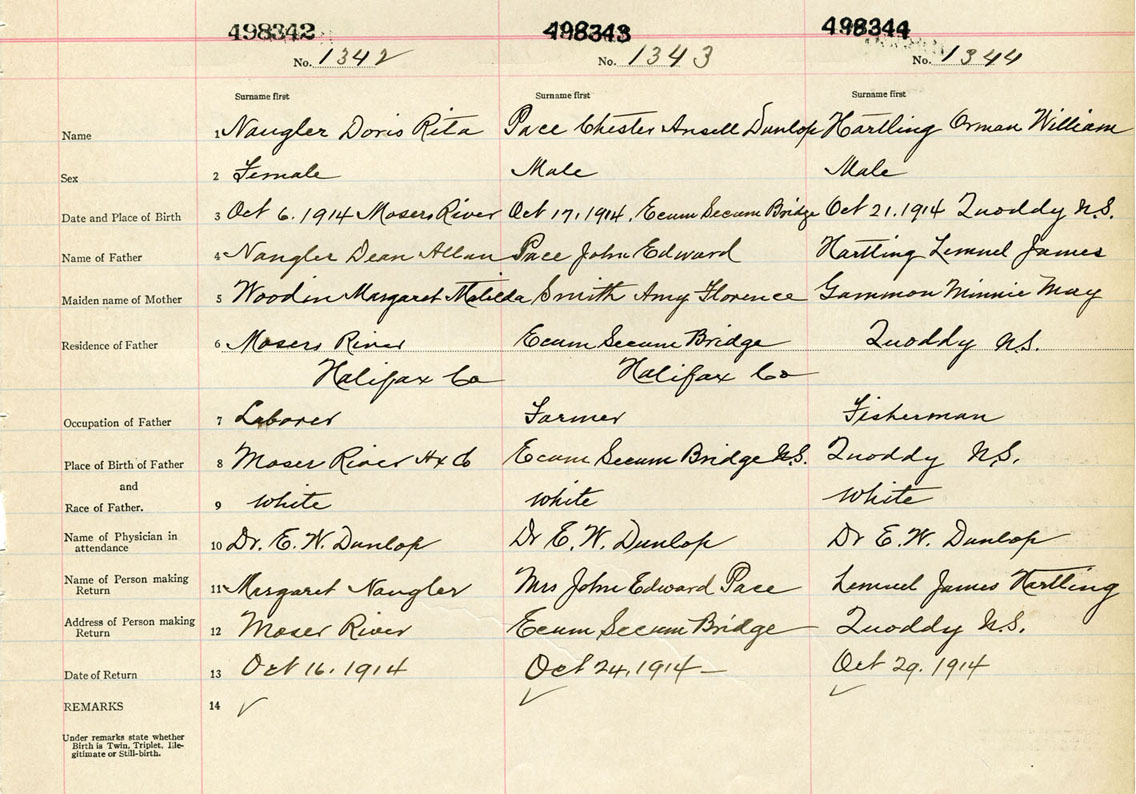 498342 498343 498344
No. 1342 No. 1343 No. 1344
Surname first Surname first Surname first
Name 1 Naugler Doris Rita Pace Chester Ansell Dunlop Hartling Orman William
Sex 2 Female Male Male
Date and Place of Birth 3 Oct 6. 1914 Mosers River Oct 17, 1914, Ecum Secum Bridge Oct 21. 1914 Quoddy N.S.
Name of Father 4 Naugler Dean Allan Pace John Edward Hartling Lemuel James
Maiden name of Mother 5 Woodin Margaret Matilda Smith Amy Florence Gammon Minnie May
Residence of Father 6 Mosers River Ecum Secum Bridge Quoddy N.S.
Halifax Co Halifax Co
Occupation of Father 7 Laborer Farmer Fisherman
Place of Birth of Father 8 Moser River Hx Co Ecum Secum Bridge N.S. Quoddy N.S.
and
Race of Father. 9 White White White
Name of Physician in attendance 10 Dr. E. W. Dunlop Dr E. W. Dunlop Dr E. W. Dunlop
Name of Person making Return 11 Margaret Naugler Mrs John Edward Pace Lemuel James Hartling
Address of Person making Return 12 Moser River Ecum Secum Bridge Quoddy N.S.
Date of Return 13 Oct 16. 1914 Oct 24, 1914 – Oct 29. 1914
REMARKS 14 ✓ ✓ ✓
Under remarks state whether
Birth is Twin, Triplet, Ille-
gitimate or Still-birth.